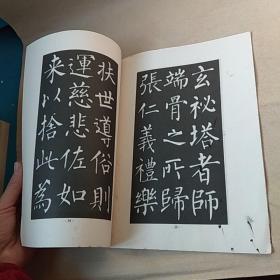 玄祕塔者師
端骨之所歸
張仁義禮樂
扶世導俗則
運慈悲佐如
来以捨此為